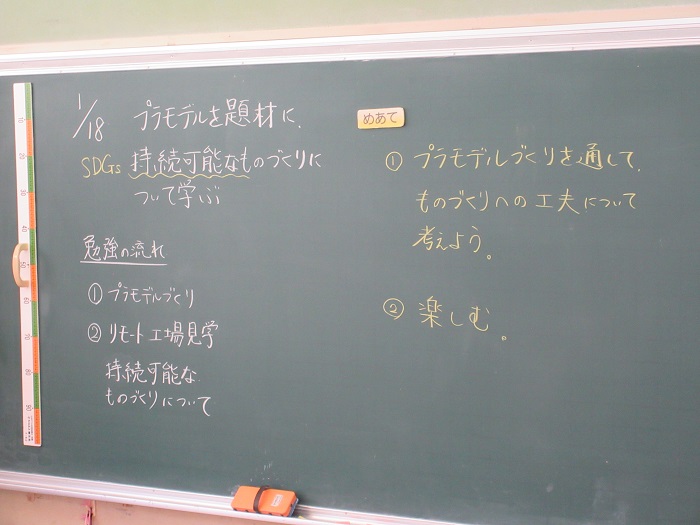 1/18 プラモデルを題材に、
SDGs 持続可能なものづくりに
ついて学ぶ
勉強の流れ
① プラモデルづくり
② リモート工場見学
持続可能な
ものづくりについて
めあて
① プラモデルづくりを通して、
ものづくりへの工夫について
考えよう。
② 楽しむ。
10
20
30
40
50
60
70
80
90